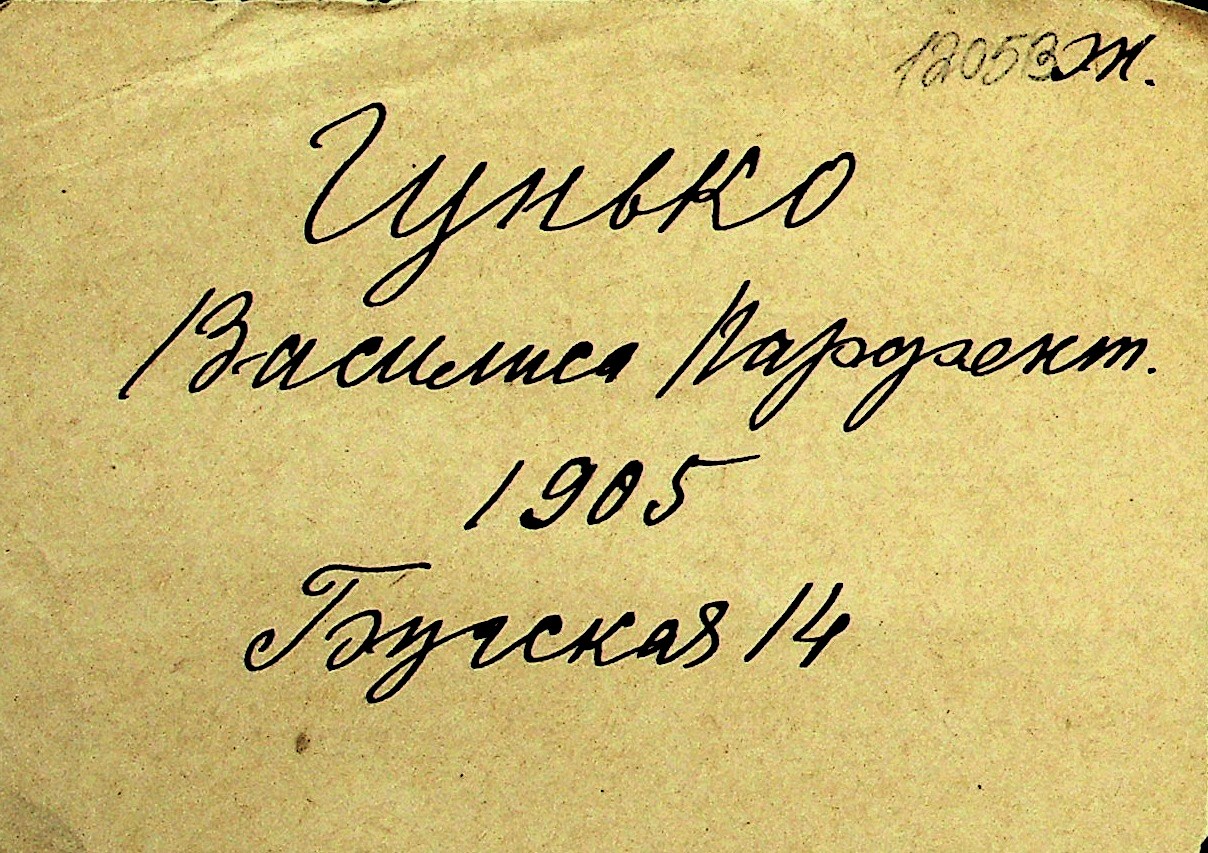 12053 Ж.
Гунько
Василиса Парфент.
1905
Бугская 14